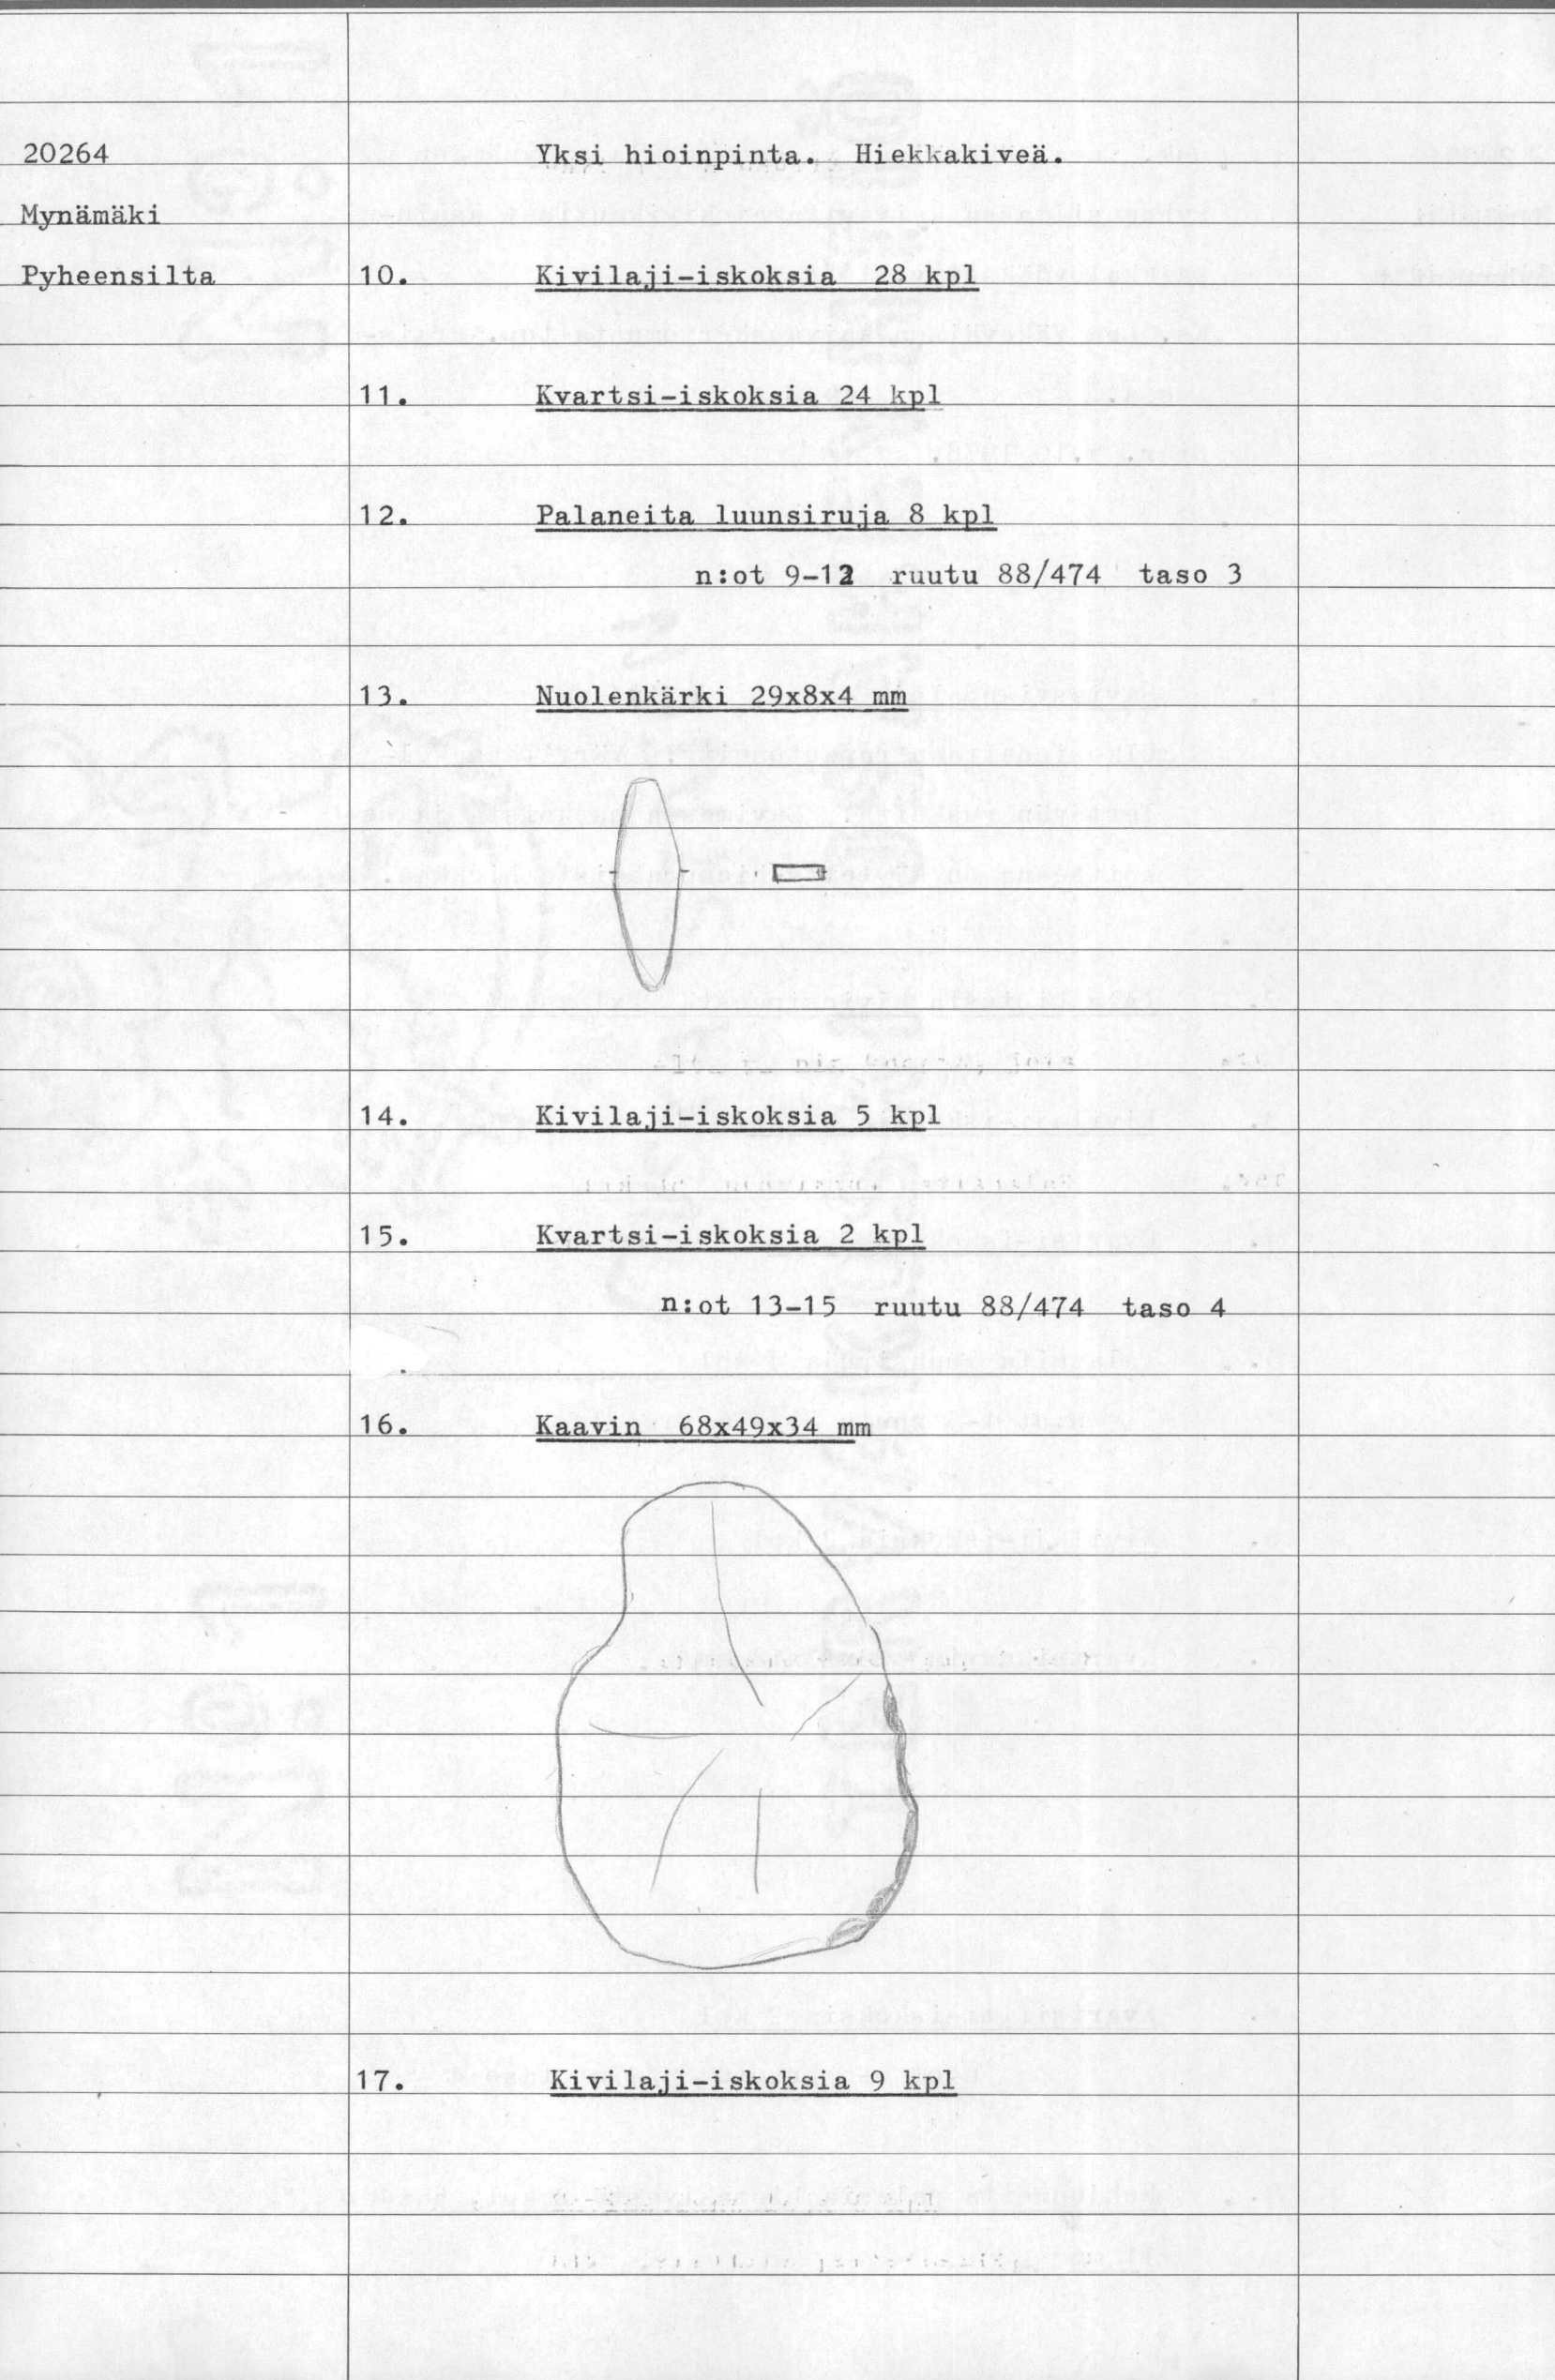 20264 Yksi hioinpinta. Hiekkakiveä.
Mynämäki
Pyheensilta 10. Kivilaji-iskoksia 28 kpl
11. Kvartsi-iskoksia 24 kpl
12. Palaneita luunsiruja 8 kpl
n:ot 9-12 ruutu 88/474 taso 3
13. Nuolenkärki 29x8x4 mm
14. Kivilaji-iskoksia 5 kpl
15. Kvartsi-iskoksia 2 kpl
n:ot 13-15 ruutu 88/474 taso 4
16. Kaavin 68x49x34 mm
17. Kivilaji-iskoksia 9 kpl